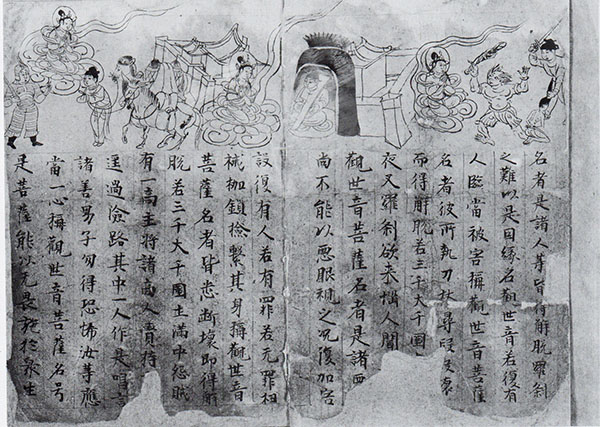 名者是諸人等皆得解脫羅剎
之難以是因緣名觀世音若復有
人臨當被害稱觀世音菩薩
名者彼所執刀杖尋段段壞
而得解脫若三千大千國
夜叉羅剎欲來惱人聞
觀世音菩薩名者是諸惡
尚不能以惡眼視之況復加害
設復有人若有罪若无罪杻
械枷鎖撿繫其身稱觀世音
菩薩名者皆悉斷壞即得解
脫若三千大千國土滿中怨賊
有一商主將諸商人賫持
逕過險路其中一人作是唱言
諸善男子勿得恐怖汝等應
當一心稱觀世音菩薩名号
是菩薩能以无畏施於衆生